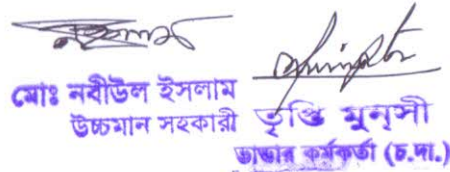 মোঃ নবীউল ইসলাম
উচ্চমান সহকারী
তৃপ্তি মুন্সী
ভান্ডার কর্মকর্তা (চ.দা.)